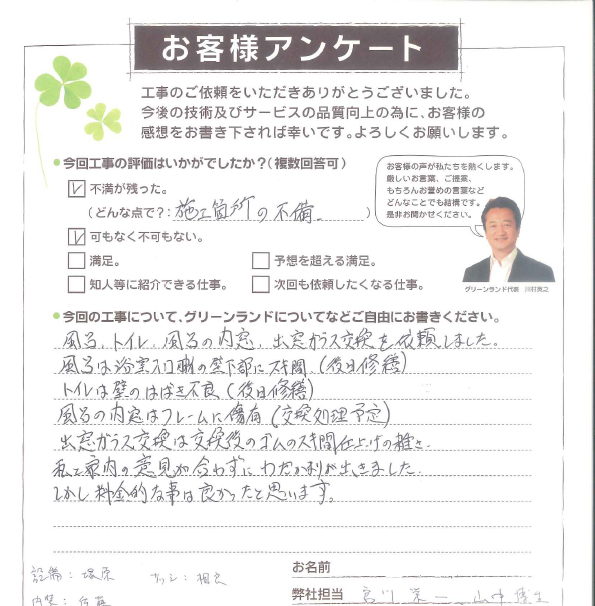 お客様アンケート
工事のご依頼をいただきありがとうございました。
今後の技術及びサービスの品質向上の為に、お客様の
感想をお書き下されば幸いです。よろしくお願いします。
●今回工事の評価はいかがでしたか?(複数回答可)
お客様の声が私たちを熱くします。
厳しいお言葉、ご提案、
もちろんお誉めの言葉など
どんなことでも結構です。
是非お聞かせください。
グリーンランド代表 川村亮之
不満が残った。
(どんな点で?:施工箇所の不備 )
可もなく不可もない。
満足。 予想を超える満足。
知人等に紹介できる仕事。 次回も依頼したくなる仕事。
●今回の工事について、グリーンランドについてなどご自由にお書きください。
風呂、トイレ、風呂の内窓、出窓ガラス交換を依頼しました。
風呂は浴室入口側の壁下部にスキ間(後日修繕)
トイレは壁のはばき不良(後日修繕)
風呂の内窓はフレームに傷有(交換処理予定)
出窓ガラス交換は交換後のゴムのスキ間仕上げの種を
私と家内の意見が合わずにわだかまりが出きました
しかし料金的な事は良かったと思います。
お名前
設備: 塚原 サッシ: 相良
弊社担当 宮川栄一 山中
内装: 佐藤